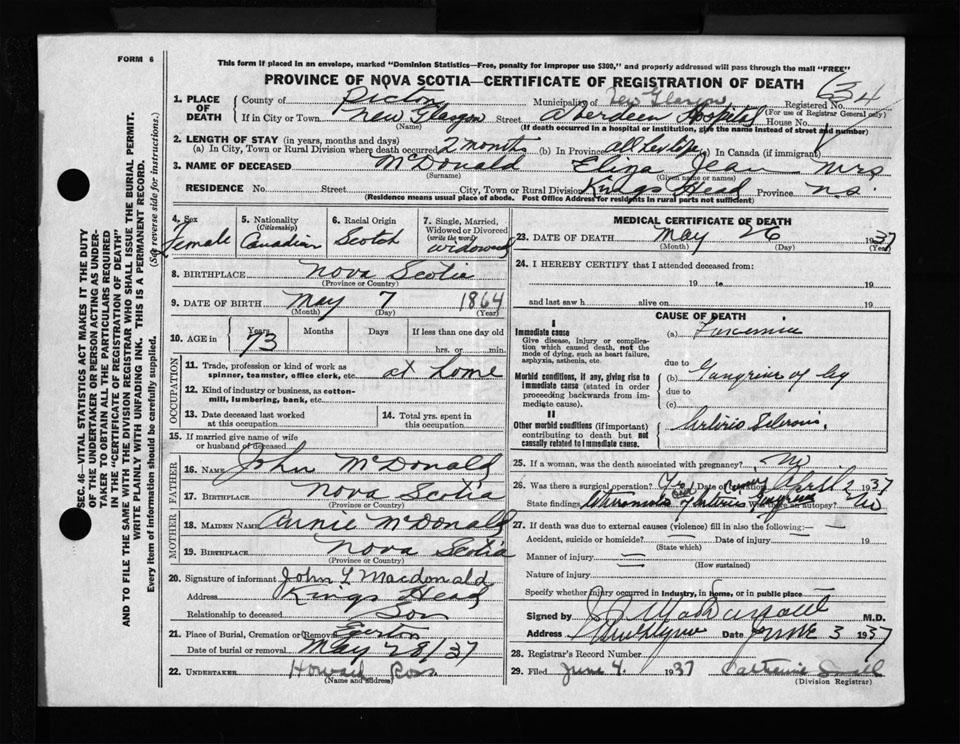 FORM 6
This form if placed in an envelope, marked "Dominion Statistics—Free, penalty for improper use $300," and properly addressed will pass through the mail "FREE"
PROVINCE OF NOVA SCOTIA—CERTIFICATE OF REGISTRATION OF DEATH
634
1. PLACE OF DEATH
County of Pictou Municipality of New Glasgow Registered No.
(For use of Registrar General only)
If in City or Town New Glasgow Street Aberdeen Hospital House No.
(Name) (If death occurred in a hospital or institution, give the name instead of street and number)
2. LENGTH OF STAY (in years, months and days)
(a) In City, Town or Rural Division where death occurred 2 months (b) In Province all her life (c) In Canada (if immigrant)
3. NAME OF DECEASED McDonald Eliza Jean Mrs
(Surname) (Given name or names)
RESIDENCE No. Street City, Town or Rural Division Kings Head Province N.S.
(Residence means usual place of abode. Post Office Address for residents in rural parts not sufficient)
4. Sex
Female
5. Nationality
(Citizenship)
Canadian
6. Racial Origin
Scotch
7. Single, Married, Widowed or Divorced
(write the word)
Widowed
8. BIRTHPLACE Nova Scotia
(Province or Country)
9. DATE OF BIRTH May 7 1864
(Month) (Day) (Year)
10. AGE in
Years Months Days If less than one day old
73 hrs. or min.
OCCUPATION
11. Trade, profession or kind of work as spinner, teamster, office clerk, etc. at home
12. Kind of industry or business, as cotton-mill, lumbering, bank, etc.
13. Date deceased last worked at this occupation
14. Total yrs. spent in this occupation
15. If married give name of wife or husband of deceased
FATHER
16. NAME John McDonald
17. BIRTHPLACE Nova Scotia
(Province or Country)
MOTHER
18. MAIDEN NAME Annie McDonald
19. BIRTHPLACE Nova Scotia
(Province or Country)
20. Signature of informant John L Macdonald
Address Kings Head
Relationship to deceased Son
21. Place of Burial, Cremation or Removal Egerton
Date of burial or removal May 28/37
22. UNDERTAKER Howard Ross
(Name and address)
MEDICAL CERTIFICATE OF DEATH
23. DATE OF DEATH May 26 1937
(Month) (Day) (Year)
24. I HEREBY CERTIFY that I attended deceased from:
19 to 19
and last saw h alive on 19
CAUSE OF DEATH
I
Immediate cause
Give disease, injury or complication which caused death, not the mode of dying, such as heart failure, asphyxia, asthenia, etc.
(a) Toxemia
due to
Morbid conditions, if any, giving rise to immediate cause (stated in order proceeding backwards from immediate cause).
(b) Gangrene of leg
due to
(c)
II
Other morbid conditions (if important) contributing to death but not causally related to immediate cause.
25. If a woman, was the death associated with pregnancy? No
26. Was there a surgical operation? Date of operation April 2 1937
State findings Was there an autopsy? No
27. If death was due to external causes (violence) fill in also the following:—
Accident, suicide or homicide? Date of injury 19
(State which)
Manner of injury
(How sustained)
Nature of injury
Specify whether injury occurred in industry, in home, or in public place
Signed by M.D.
Address New Glasgow Date June 3 1937
28. Registrar's Record Number
29. Filed June 4 1937 Catherine Small
(Division Registrar)
SEC. 46—VITAL STATISTICS ACT MAKES IT THE DUTY OF THE UNDERTAKER OR PERSON ACTING AS UNDERTAKER TO OBTAIN ALL THE PARTICULARS REQUIRED IN THE "CERTIFICATE OF REGISTRATION OF DEATH"
AND TO FILE THE SAME WITH THE DIVISION REGISTRAR WHO SHALL ISSUE THE BURIAL PERMIT.
WRITE PLAINLY WITH UNFADING INK. THIS IS A PERMANENT RECORD.
Every item of information should be carefully supplied. (See reverse side for instructions.)